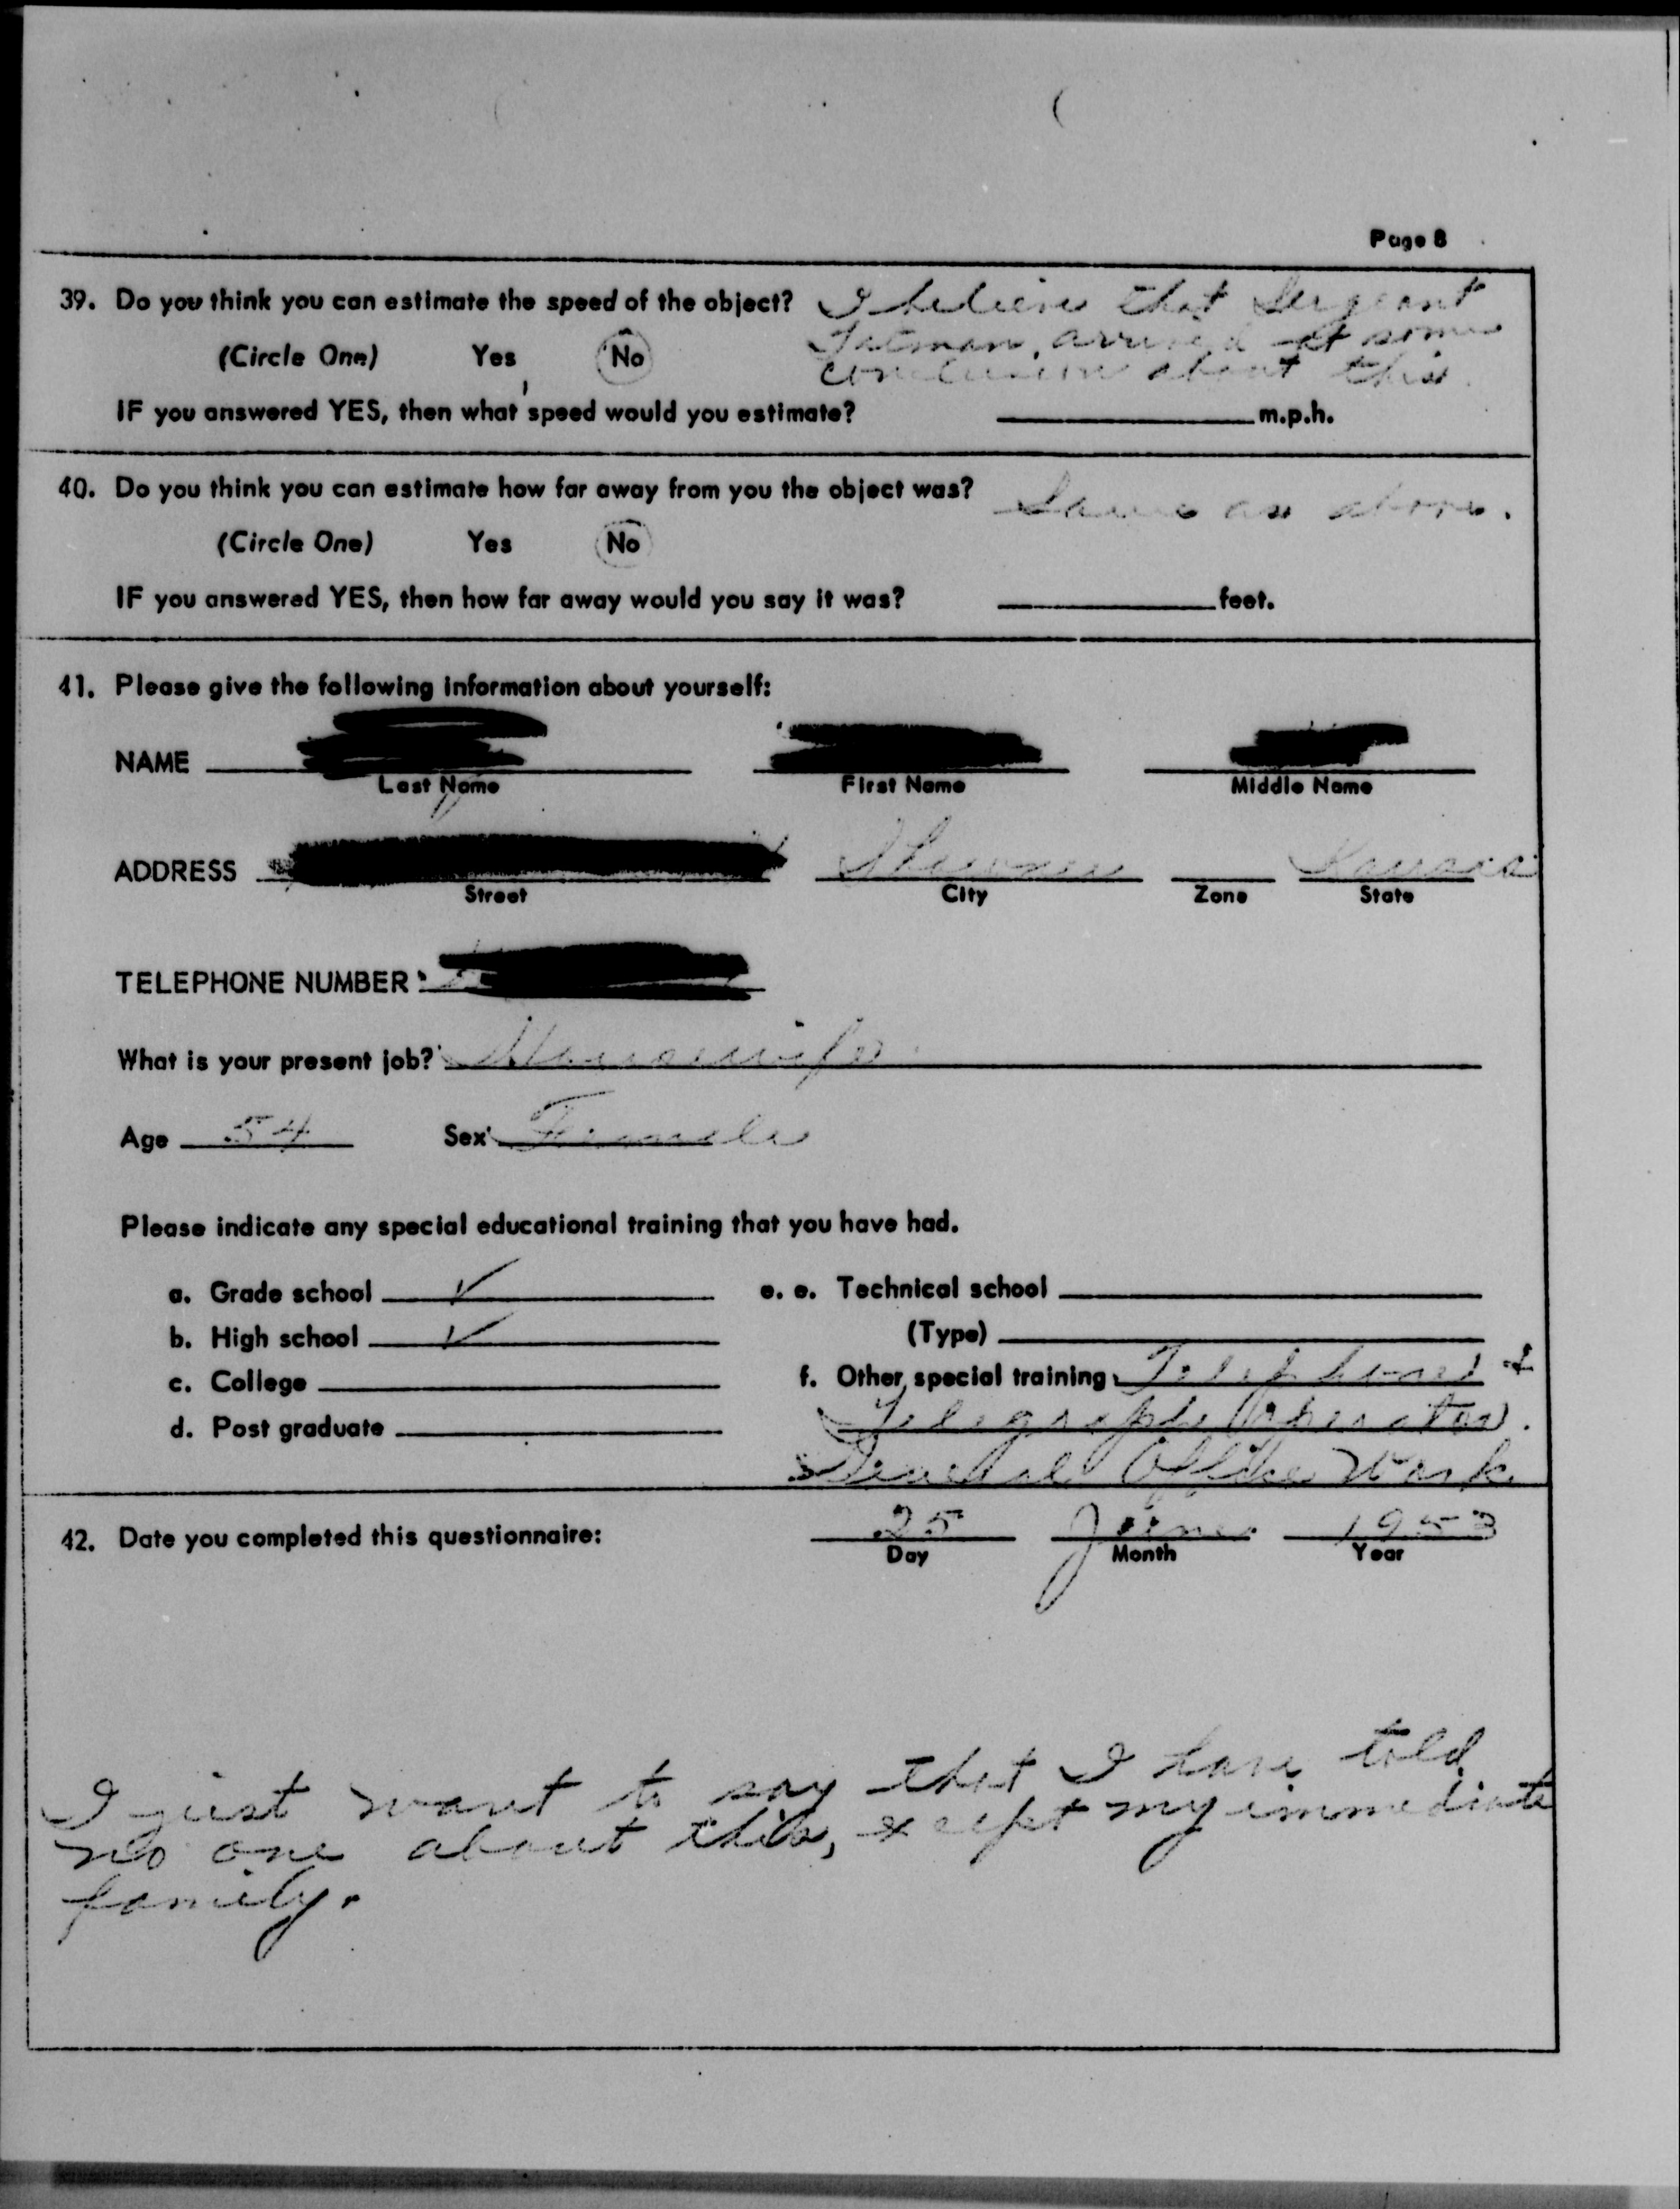 Page 8
39. Do you think you can estimate the speed of the object? I believe that Sergeant
(Circle One) Yes No arrived at some
conclusion about this.
IF you answered YES, then what speed would you estimate? m.p.h.
40. Do you think you can estimate how far away from you the object was? Same as above.
(Circle One) Yes No
IF you answered YES, then how far away would you say it was? feet.
41. Please give the following information about yourself:
NAME
Last Name First Name Middle Name
ADDRESS Shawnee Kansas
Street City Zone State
TELEPHONE NUMBER
What is your present job? Housewife
Age 54 Sex Female
Please indicate any special educational training that you have had.
a. Grade school ✓ e. e. Technical school
b. High school ✓ (Type)
c. College f. Other special training Telephone &
d. Post graduate Telegraph Operator.
General Office Work.
42. Date you completed this questionnaire: 25 June 1953
Day Month Year
I just want to say that I have told
no one about this, except my immediate
family.